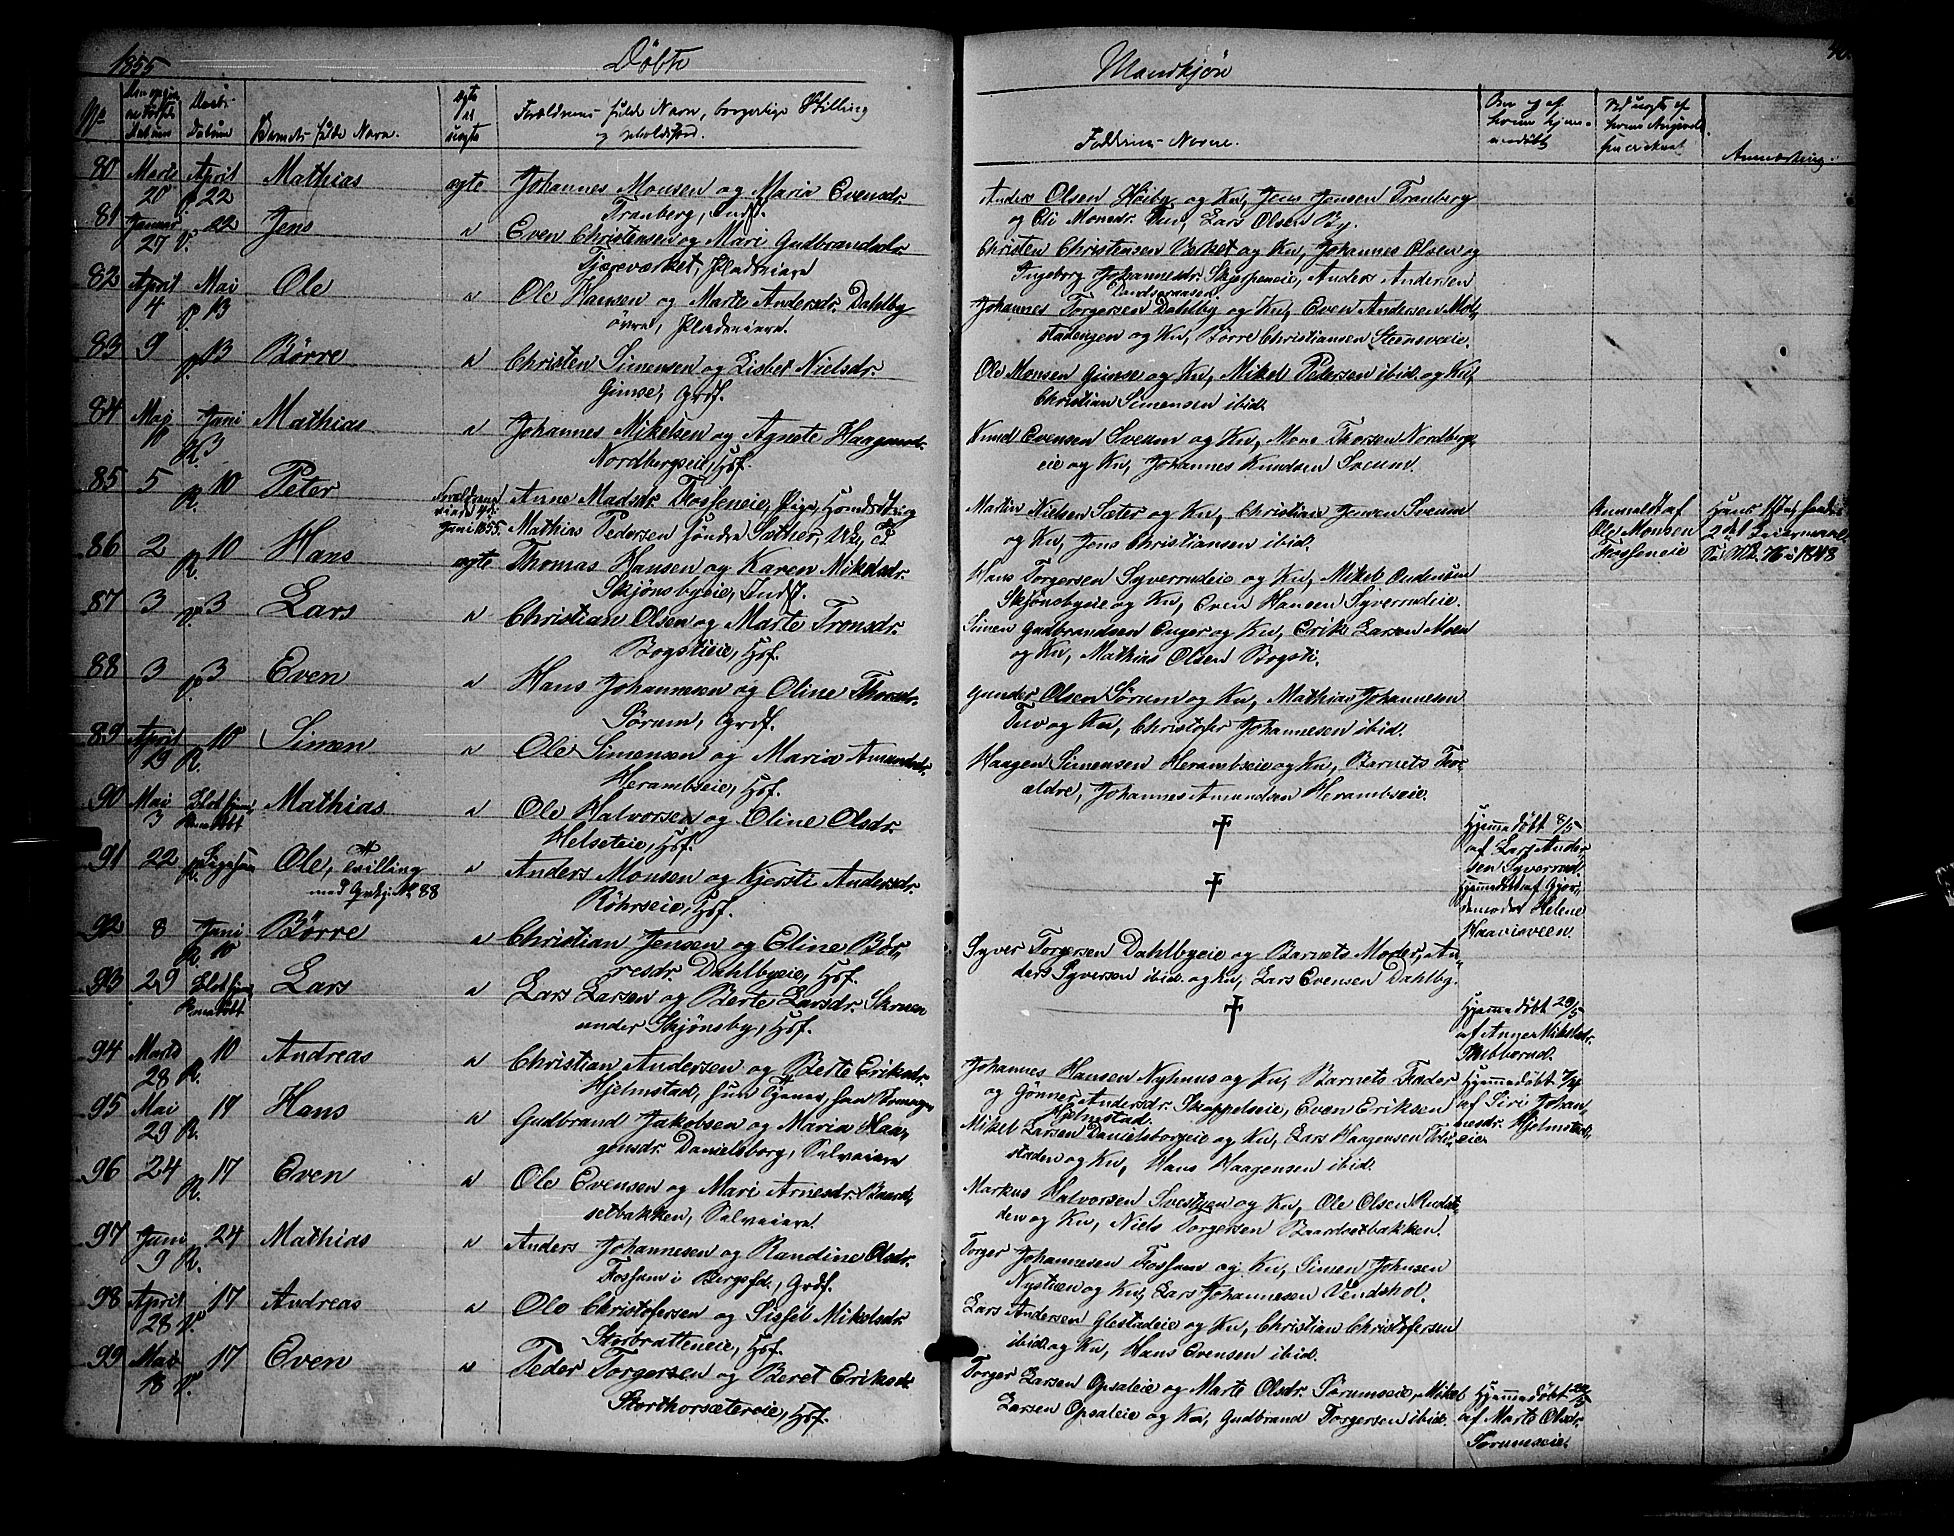 1855 Døbte Mandkjøn
No Døbt Datum Barnets fulde Navn. ægte el uægte Forældrenes fulde Navn, borgerlige Stilling
og Opholdssted. Faddernes Navne. Om og af hvem hjemmedøbt Anmærkning.
80 Marts 20 April p. 22 Mathias ægte Johannes Monsen og Maria Evensdr.
Tranberg, Inds. Anders Olsen Høiby og Kn, Jens Jensen Tranberg
og Eli Monsdr. Tun, Lars Olsen By.
81 Januar 27 V. 22 Jens " Even Christensen og Mari Gudbrandsdr.
Tjæreværket, Pladseiere Christen Christensen Værket og Kn, Johannes Olsen og
Ingeborg Johannesdr. Skjerpeneie, Anders Andersen
82 April 4 Mai V. 13 Ole " Ole Hansen og Marte Andersdr. Dahlby
øvre, Pladseiere. Johannes Torgersen Dahlby og Kn, Even Andersen Mol
stadengen og Kn, Børre Christiansen Steensveie.
83 9 p. 13 Børre " Christen Simensen og Lisbet Nielsdr.
Gimse, Grdf. Ole Monsen Gimse og Kn, Mikel Pedersen ibid. og Kn,
Christian Simensen ibid.
84 Maj 11 Juni R. 3 Mathias " Johannes Mikelsen og Agnete Haagensdr.
Nordbergseie, Hsf. Knud Evensen Sveum og Kn, Mons Thorsen Nordbergs
eie og Kn, Johannes Knudsen Sveum.
85 5 R. 10 Peter Forældrene viede 4de Juni 1855. Anne Madsdr. Fosseneie, Pige,
Mathias Pedersen Søndre Sæther, Martin Nielsen Sæter og Kn, Christian Jensen Sveum
og Kn, Jens Christiansen ibid. Anmeldt af Ole Monsen Fosseneie Hans 1ste, hendes 2det Leiermaal
86 2 R. 10 Hans ægte Thomas Hansen og Karen Mikelsdr.
Skjønsbyeie, Inds. Hans Torgersen Syverrudeie og Kn, Mikel Andersen
Skjønsbyeie og Kn, Even Hansen Syverrudeie.
87 3 V. 3 Lars " Christian Olsen og Marte Tronsdr.
Bogstieie, Hsf. Simen Gudbrandsen Enger og Kn, Erik Larsen Moen
og Kn, Mathias Olsen Bogsti.
88 3 p. 3 Even " Hans Johannesen og Oline Thorsdr.
Sørum, Grdf. Gunder Olsen Sørum og Kn, Mathias Johannesen
Tuv og Kn, Christofer Johannesen ibid.
89 April 19 R. 10 Simen " Ole Simensen og Maria Amundsdr.
Herambseie, Hsf. Haagen Simensen Herambseie og Kn, Barnets For
ældre, Johannes Amundsen Herambseie.
90 Mai 3 Blot hjemmedøbt Mathias " Ole Halvorsen og Oline Olsdr.
Helseteie, Hsf. † Hjemmedøbt 8/5 af Lars Andersen Syverrud.
91 22 R. Ligesaa Ole, Tvilling
med Qvkj. No 88 " Anders Monsen og Kjersti Andersdr.
Röhrseie, Hsf. † Hjemmedøbt af Gjordemoder Helene Haavieveen.
92 8 Juni R. 10 Børre " Christian Jensen og Eline Bør,
resdr. Dahlbyeie, Hsf. Syver Torgersen Dahlbyeie og Barnets Moder, An
ders Syversen ibid. og Kn, Lars Evensen Dahlby.
93 29 Blot hjemmedøbt Lars " Lars Larsen og Berte Larsdr. Skruen
under Skjønsby, Hsf. † Hjemmedøbt 29/5 af Mikelsdr.
94 Marts 28 R. 10 Andreas " Christian Andersen og Berte Eriksdr.
Hjelmstad, hun Tjener, han Johannes Hansen Nyhuus og Kn, Barnets Fader
og Gønner Andersdr. Skappelseie, Even Eriksen
Hjelmstad. Hjemmedøbt 7/4 af Siri Johannesdr. Hjelmstad,
95 Mai 29 R. 17 Hans " Gudbrand Jakobsen og Maria Haa,
gensdr. Danielsborg, Selveiere Mikel Larsen Danielsborgeie og Kn, Lars Haagensen
staden og Kn, Hans Haagensen ibid.
96 24 R. 17 Even " Ole Evensen og Mari Arnesdr. Baard,
setbakken, Selveiere. Markus Halvorsen Svestyen og Kn, Ole Olsen Rudsta
den og Kn, Niels Torgersen Baardsetbakken.
97 Juni 9 R. 24 Mathias " Anders Johannesen og Randine Olsdr.
Fossum i Bergsfd., Grdf. Torger Johannesen Fossum og Kn, Simen Johnsen
Nystuen og Kn, Lars Johannesen Vendshol.
98 April 28 V. 17 Andreas " Ole Christofersen og Sissel Mikelsdr.
Storbratteneie, Hsf. Lars Andersen Glestadeie og Kn, Christian Christofersen
ibid. og Kn, Hans Evensen ibid.
99 Mai 18 V. 17 Even " Peder Torgersen og Beret Eriksdr.
Storthorsætereie, Hsf. Torger Larsen Opsaleie og Marte Olsdr. Sørumseie, Mikel
Larsen Opsaleie og Kn, Gudbrand Torgersen ibid. Hjemmedøbt af Marte Olsdr. Sørumseie.